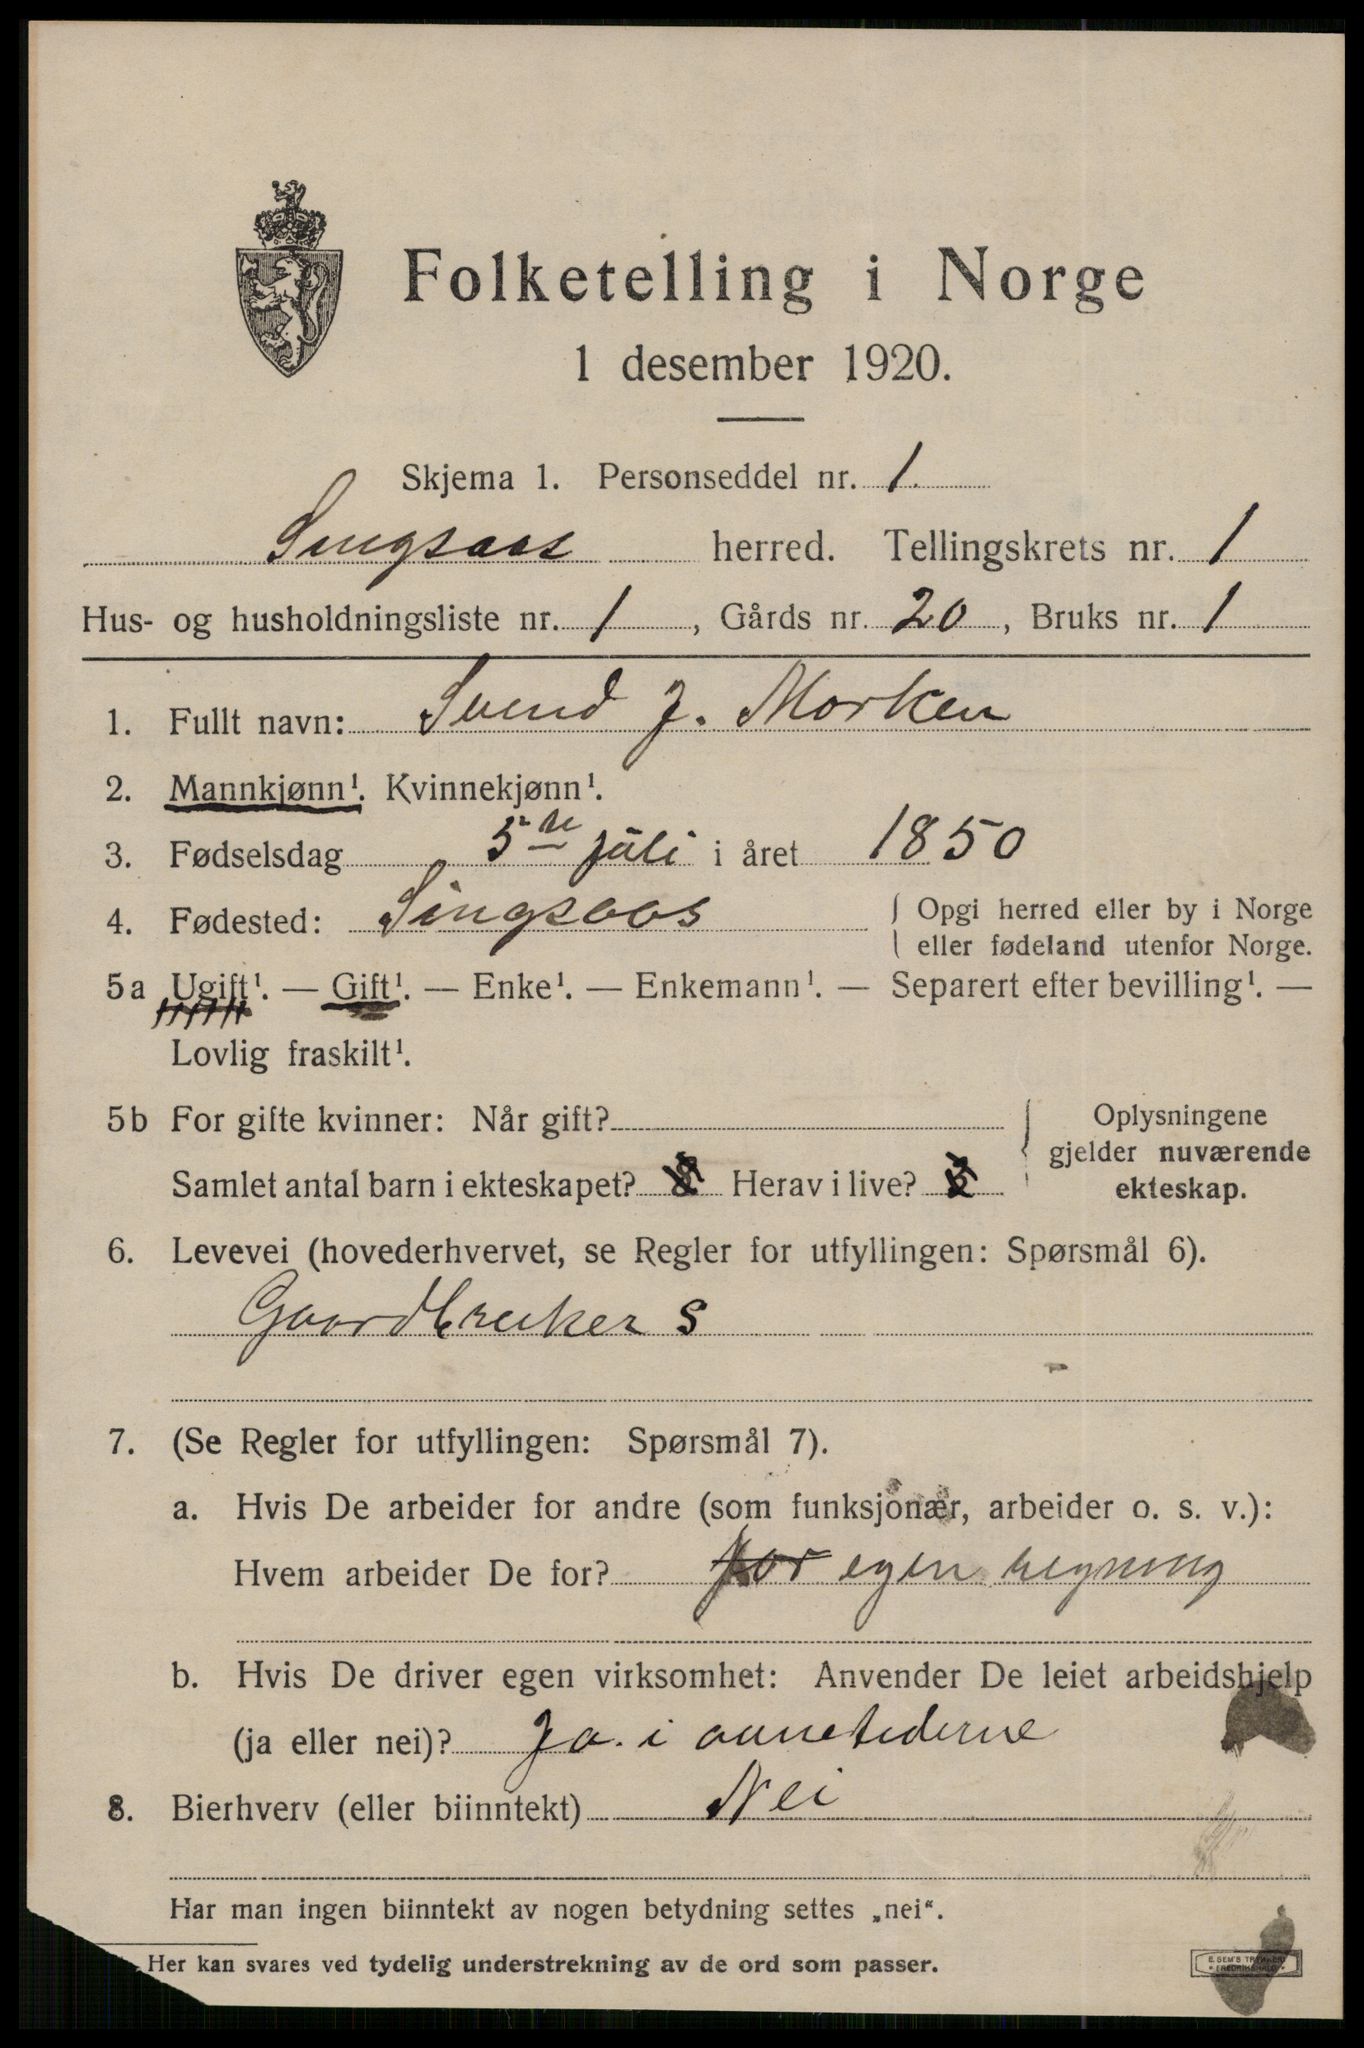 Folketelling i Norge
1 desember 1920.
Skjema 1. Personseddel nr. 1.
Singsaas herred. Tellingskrets nr. 1
Hus- og husholdningsliste nr. 1, Gårds nr. 20, Bruks nr. 1
1. Fullt navn: Svend J. Morken
2. Mannkjønn¹. Kvinnekjønn¹.
3. Fødselsdag 5te juli i året 1850
4. Fødested: Singsaas { Opgi herred eller by i Norge
eller fødeland utenfor Norge.
5a Ugift¹. — Gift¹. — Enke¹. — Enkemann¹. — Separert efter bevilling¹. —
Lovlig fraskilt¹.
5b For gifte kvinner: Når gift? { Oplysningene
gjelder nuværende
Samlet antal barn i ekteskapet? Herav i live? ekteskap.
6. Levevei (hovederhvervet, se Regler for utfyllingen: Spørsmål 6).
Gaardbruker S
7. (Se Regler for utfyllingen: Spørsmål 7).
a. Hvis De arbeider for andre (som funksjonær, arbeider o. s. v.):
Hvem arbeider De for? for egen regning
b. Hvis De driver egen virksomhet: Anvender De leiet arbeidshjelp
(ja eller nei)? Ja. i onnetiderne
8. Bierhverv (eller biinntekt) Nei
Har man ingen biinntekt av nogen betydning settes „nei“.
Her kan svares ved tydelig understrekning av de ord som passer.
E. SEM'S TRYKKERI
FREDRIKSHALD